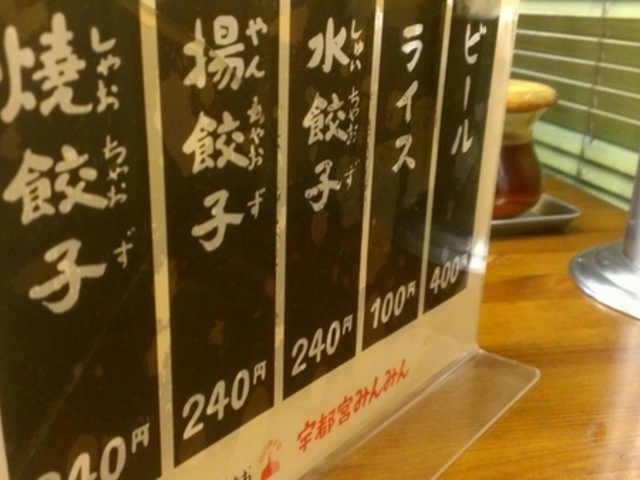 ビール
400円
ライス
100円
水餃子
しゅい ちゃお ず
240円
揚餃子
やん ちゃお ず
240円
焼餃子
しゃお ちゃお ず
240円
宇都宮みんみん